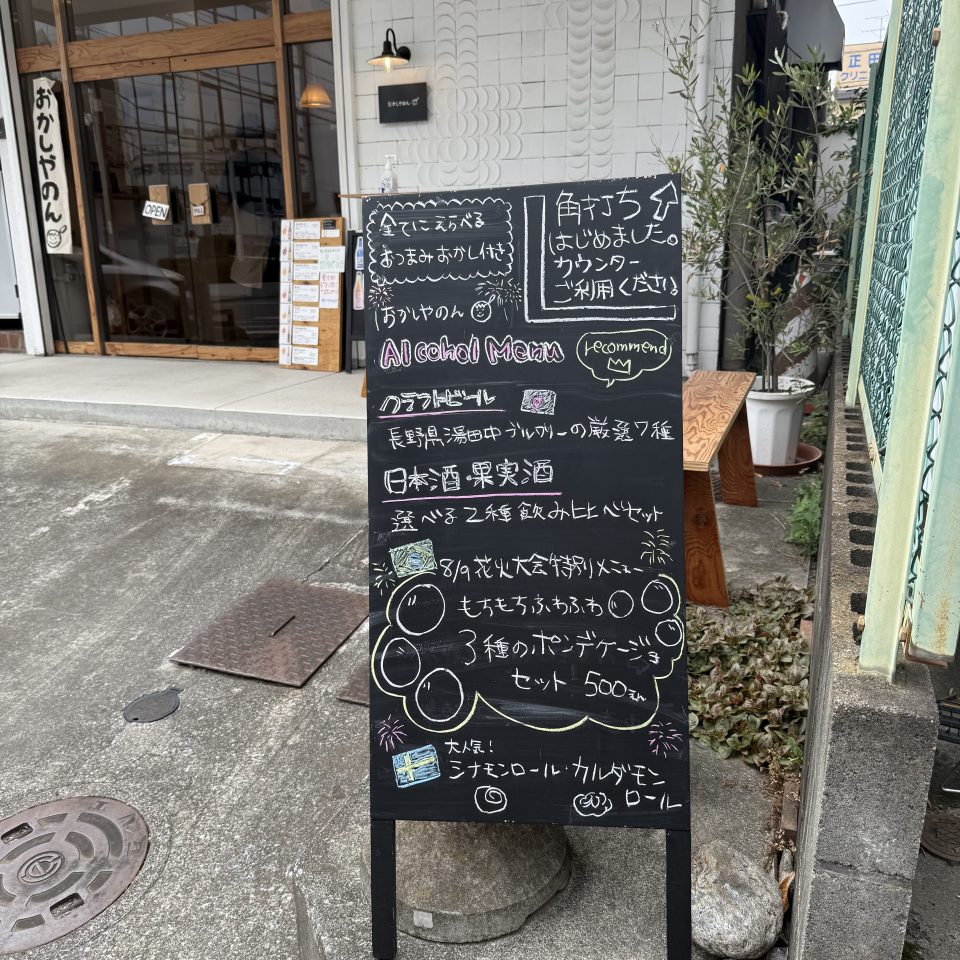 正田
クリニ
おかしやのん
おかしやのん
OPEN
全てにえらべる
おつまみおかし付き
角打ち
はじめました。
カウンター
ご利用ください
おかしやのん
Alcohol Menu
recommend
クラフトビール
長野県湯田中ブルワリーの厳選7種
日本酒・果実酒
選べる2種飲み比べセット
8/9花火大会特別メニュー
もちもちふわふわ
3種のポンデケージョ
セット 500えん
大人気!
シナモンロール・カルダモン
ロール